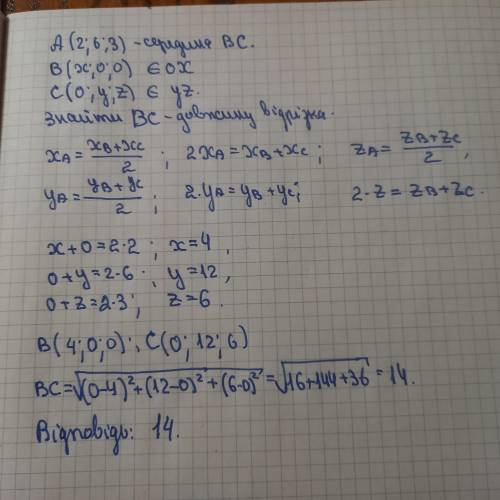 A(2;6;3) - середина BC.
B(x;0;0) ∈ OX
C(0;y;z) ∈ yz.
Знайти BC - довжину відрізка.
x_A = (x_B + x_C)/2 ; 2x_A = x_B + x_C ; z_A = (z_B + z_C)/2 ,
y_A = (y_B + y_C)/2 ; 2·y_A = y_B + y_C ; 2·z = z_B + z_C .
x+0=2·2 ; x=4 ,
0+y=2·6 ; y=12 ,
0+z=2·3 ; z=6 .
B(4;0;0) ; C(0;12;6)
BC=√((0-4)²+(12-0)²+(6-0)²)=√(16+144+36)=14.
Відповідь: 14.